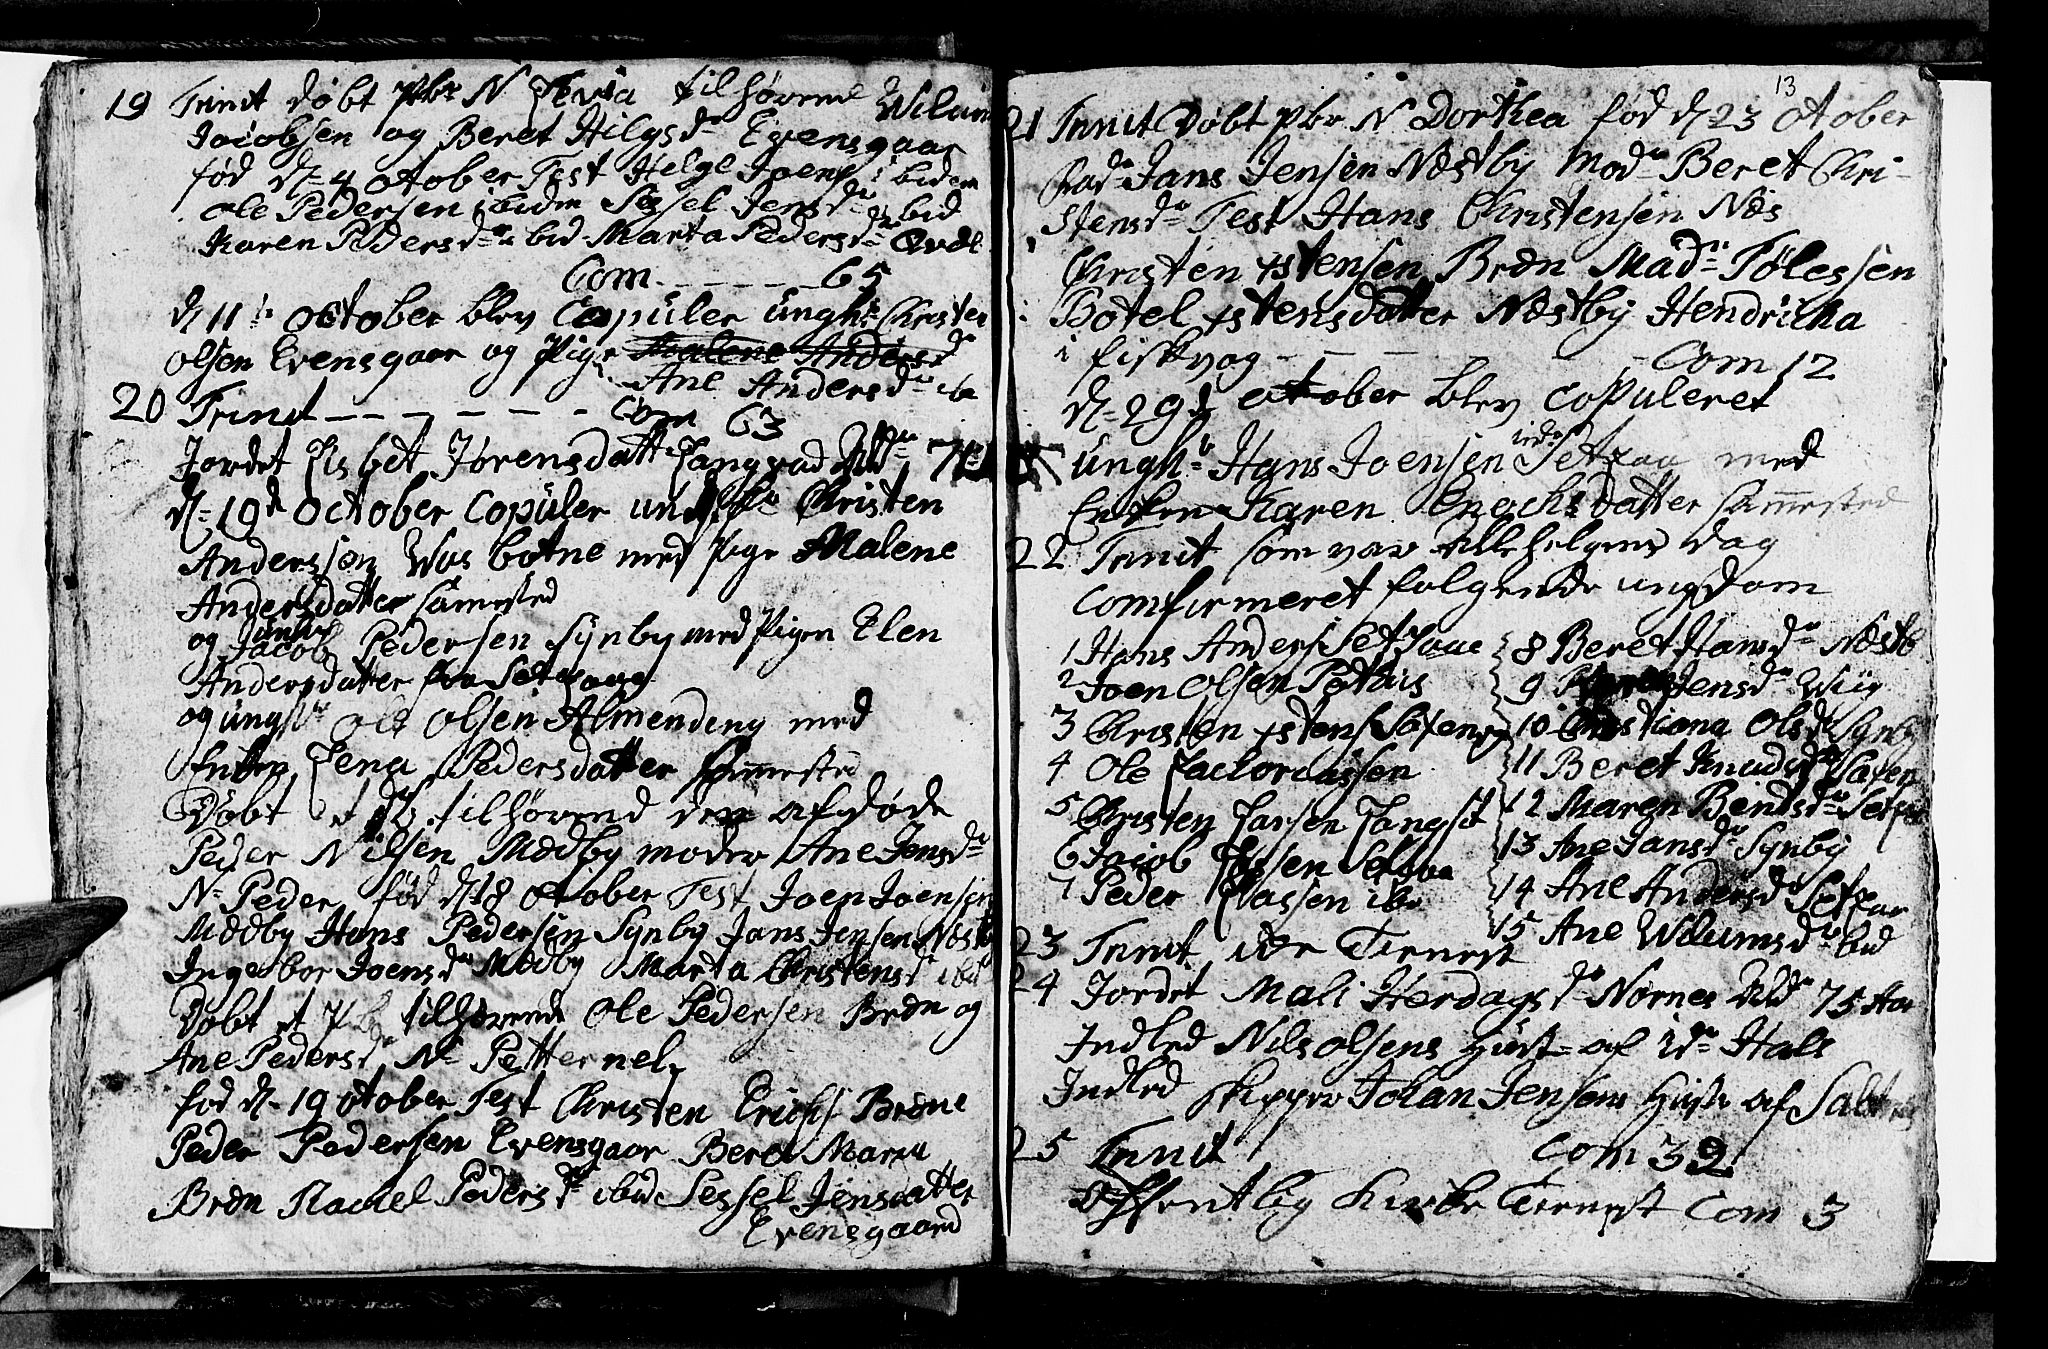 19 Trinit døbt pbr N tilhørend Wilum
Jacobsen og Beret Hilgsdr Evensgaar
fød d= 4 otober Test Helge Joens ibidem
Ole Pedersen ibidm Sessel Jensdr ibid
Karen Pedersdr ibid Marta Pedersdr
Com - - - - - 65
d 11 october blev Copuler ungk: Christen
olsen Evensgaar og Pige Malene Andersdr
Ane Andersdr ib
20 Trinit - - - - - - Com 63
Jordet Elsbet Jørensdatter Langvad Alldr
d= 19d October copuler ungk Christen
Andersson botne med Pige Malene
Andersdatter sammested
og Jacob Pedersen Synby med Pigen Elen
Andersdatter fra Setraae
og ungk Ole Olsen Almendeng med
Enken Lena Pedersdatter sammested
Døbt et db. tilhørend den afdøde
Peder Nilsen Mædby moder Ane Jensdr
N= Peder fød d 18 otober Test Joen Joensen
Mædby Hans Pedersen Synby Jans Jensen Næstb
Ingebor Joensdr Mædby Marta Christensdr ibid
Døbt et tilhørende Ole Pedersen Bræn og
Ane Pedersdr N= Petternel
fød d= 19 otober Test Christen Erichs Bræne
Peder Pedersen Evensgaar Beret Maria
Bræn Rachel Pedersdr ibid Sessel Jensdatter
Evensgaard
13
21 Trinit Døbt pbr N Dorthea fød d 23 otober
Fadr Jans Jensen Næstby Modr Beret Chri-
stensdr Test Hans Christensen Næs
Christen xstensen Bræn Madr Tølessen
Botel xstensdatter Næstby Hendricka
i fiskvog - - - - Com 12
d= 29 october blev Copuleret
ungk= Hans Joensen Setraa med
Enken Karen Enochsdatter sammested
22 Trinit som var Allehelgens Dag
Comfirmeret følgende ungdom
1 Hans Anders Setraae
2 Joen Olsen
3 Christen xstens Saxeng
4 Ole Zachoriassen
5 Christen Larsen Langset
6 Jacob Setraa
7 Peder Classen ibi
8 Beret Hansdr Næstb
9 Jensdr Wiig
10 Christiana Olsdr Synby
11 Beret Knudsdr Saxen
12 Maren Bentsdr Setraa
13 Ane Jansdr Synby
14 Ane Andersdr Setraa
15 Ane Wilumsdr ibid
23 Trinit
24 Jordet Mali Herdagsdr Nornes Aldr 75 Aar
Indled Nils olsens Hust= af Hals
Indled skipper Johan Jensens Hust af Salt
25 Trinit Com 32
offentlig Kirke Tienest Com 3